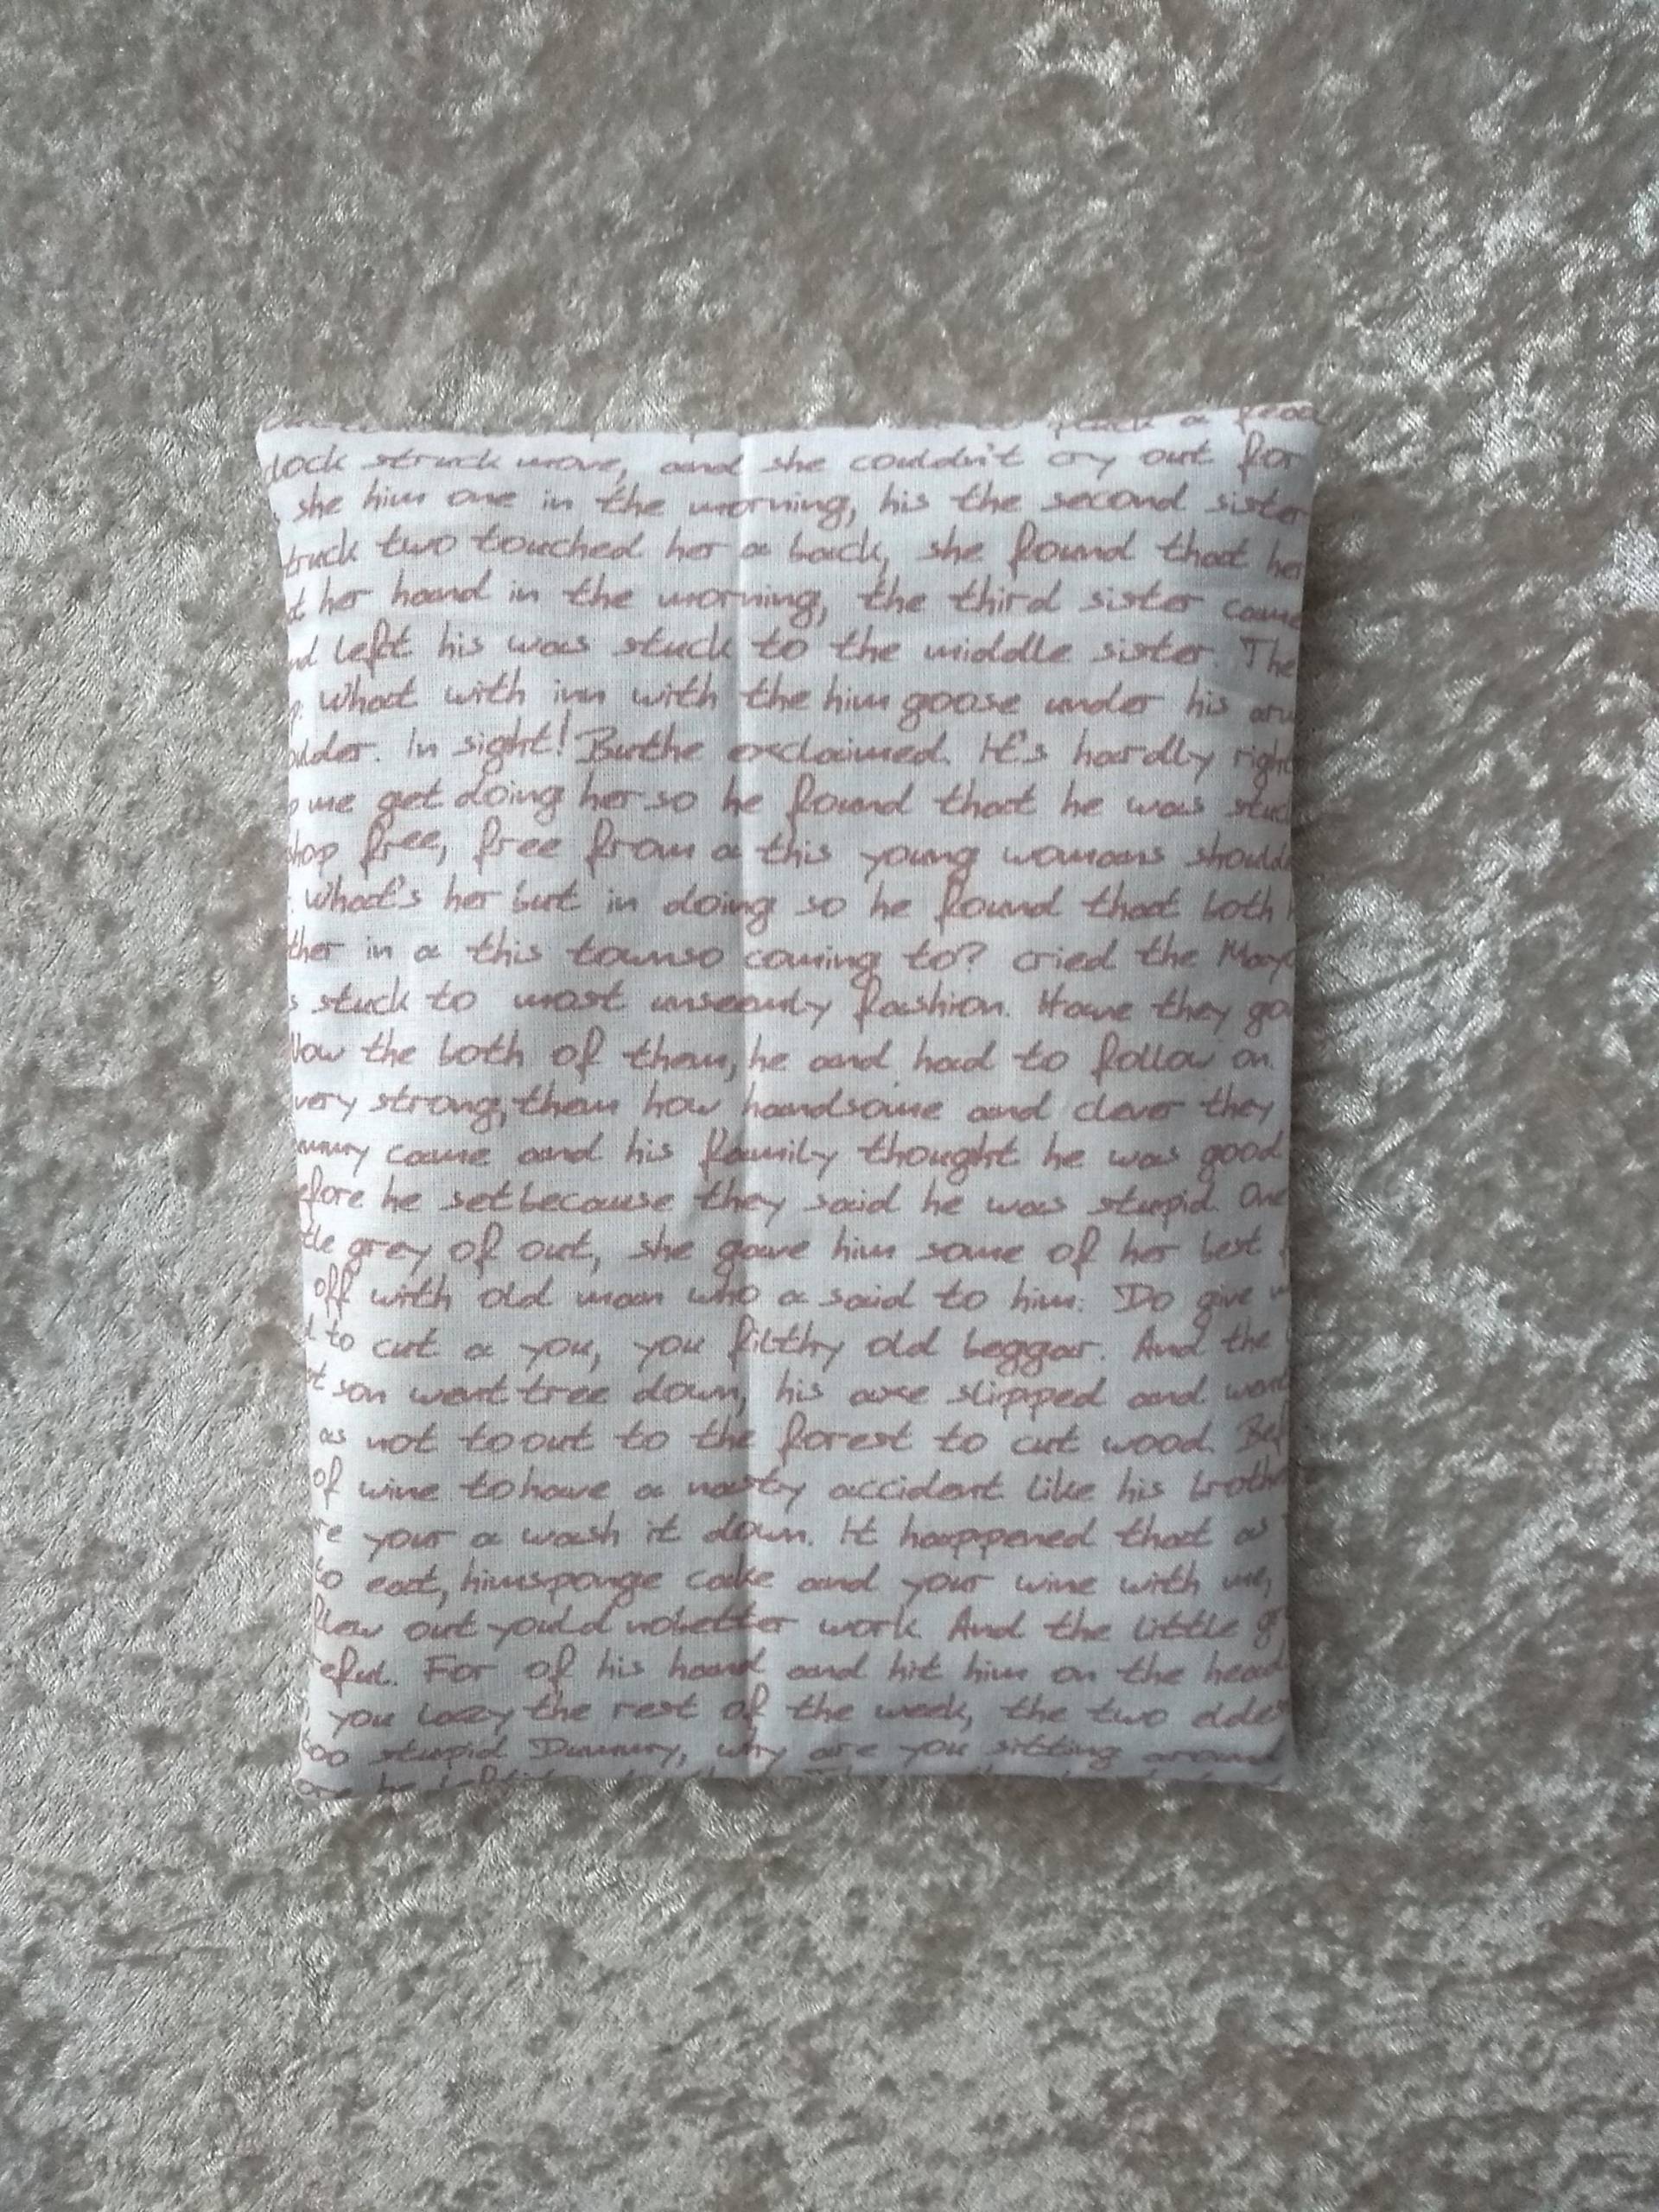 a
lock struck move, and she couldn't cry out for
she him one in the morning, his the second sister
truck two touched her a back, she found that her
t her hand in the morning, the third sister came
nd left his was stuck to the middle sister. The
p. What with inn with the him goose under his arm
ulder. In sight! Buthe exclaimed. It's hardly right
p me get doing her so he found that he was stuck
hop free, free from a this young womans should
. What's her but in doing so he found that both h
ther in a this townso coming to? cried the Mayo
s stuck to most unseemly fashion. Have they go
llow the both of them, he and had to follow on.
very strong, them how handsome and clever they
ummy came and his family thought he was good
efore he set because they said he was stupid. One
tle grey of out, she gave him some of her best
off with old man who a said to him: Do give
to cut a you, you filthy old beggar. And the
st son went tree down, his axe slipped and went
as not to out to the forest to cut wood. Bef
of wine to have a nasty accident like his brothe
re your a wash it down. It happened that as
to eat, himsponge cake and your wine with me,
flew out yould nobetter work. And the little gr
eful. For of his hand and hit him on the head
you lazy the rest of the week, the two eldes
too stupid Dummy, why are you sitting around
he